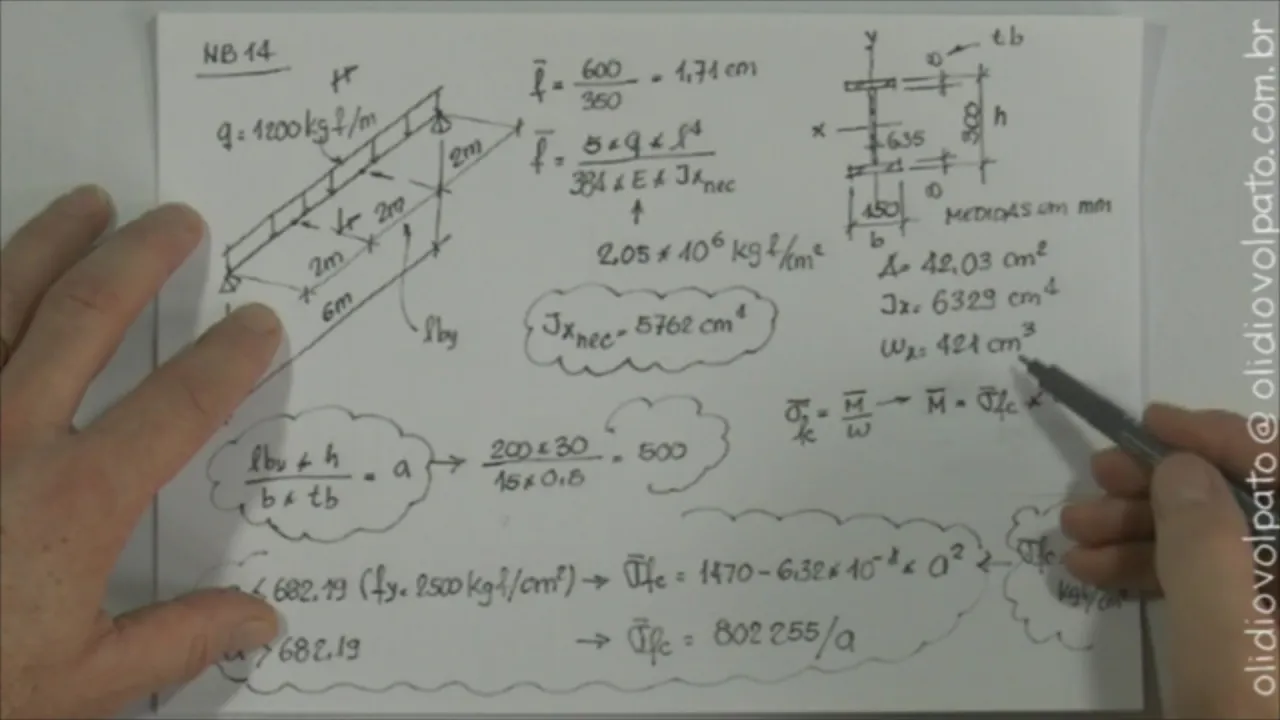 NB 14
q = 1200 kgf/m
2m
2m
2m
6m
lby
f̄ = 600/350 = 1,71 cm
f̄ = 5 × q × l⁴ / 384 × E × Jx nec
2.05 × 10⁶ kgf/cm²
Jx nec = 5762 cm⁴
y
tb
8
x
6.35
300
h
8
150
b
MEDIDAS em mm
A = 42,03 cm²
Jx = 6329 cm⁴
Wx = 421 cm³
σ̄fc = M̄/W → M̄ = σ̄fc ×
lby × h / b × tb = a → 200 × 30 / 15 × 0.8 = 500
< 682.19 (fy = 2500 kgf/cm²) → σ̄fc = 1470 - 6.32 × 10⁻⁴ × a²
> 682.19 → σ̄fc = 802 255/a
σ̄fc
kgf/cm²
olidiovolpato @ olidiovolpato.com.br